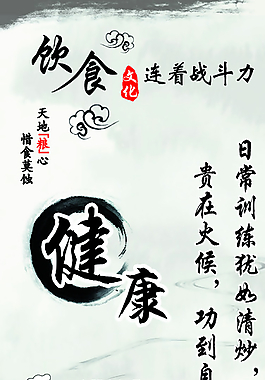 饮食文化连着战斗力
天地「粮」心
惜食莫蚀
健康
日常训练犹如清炒，
贵在火候，功到自